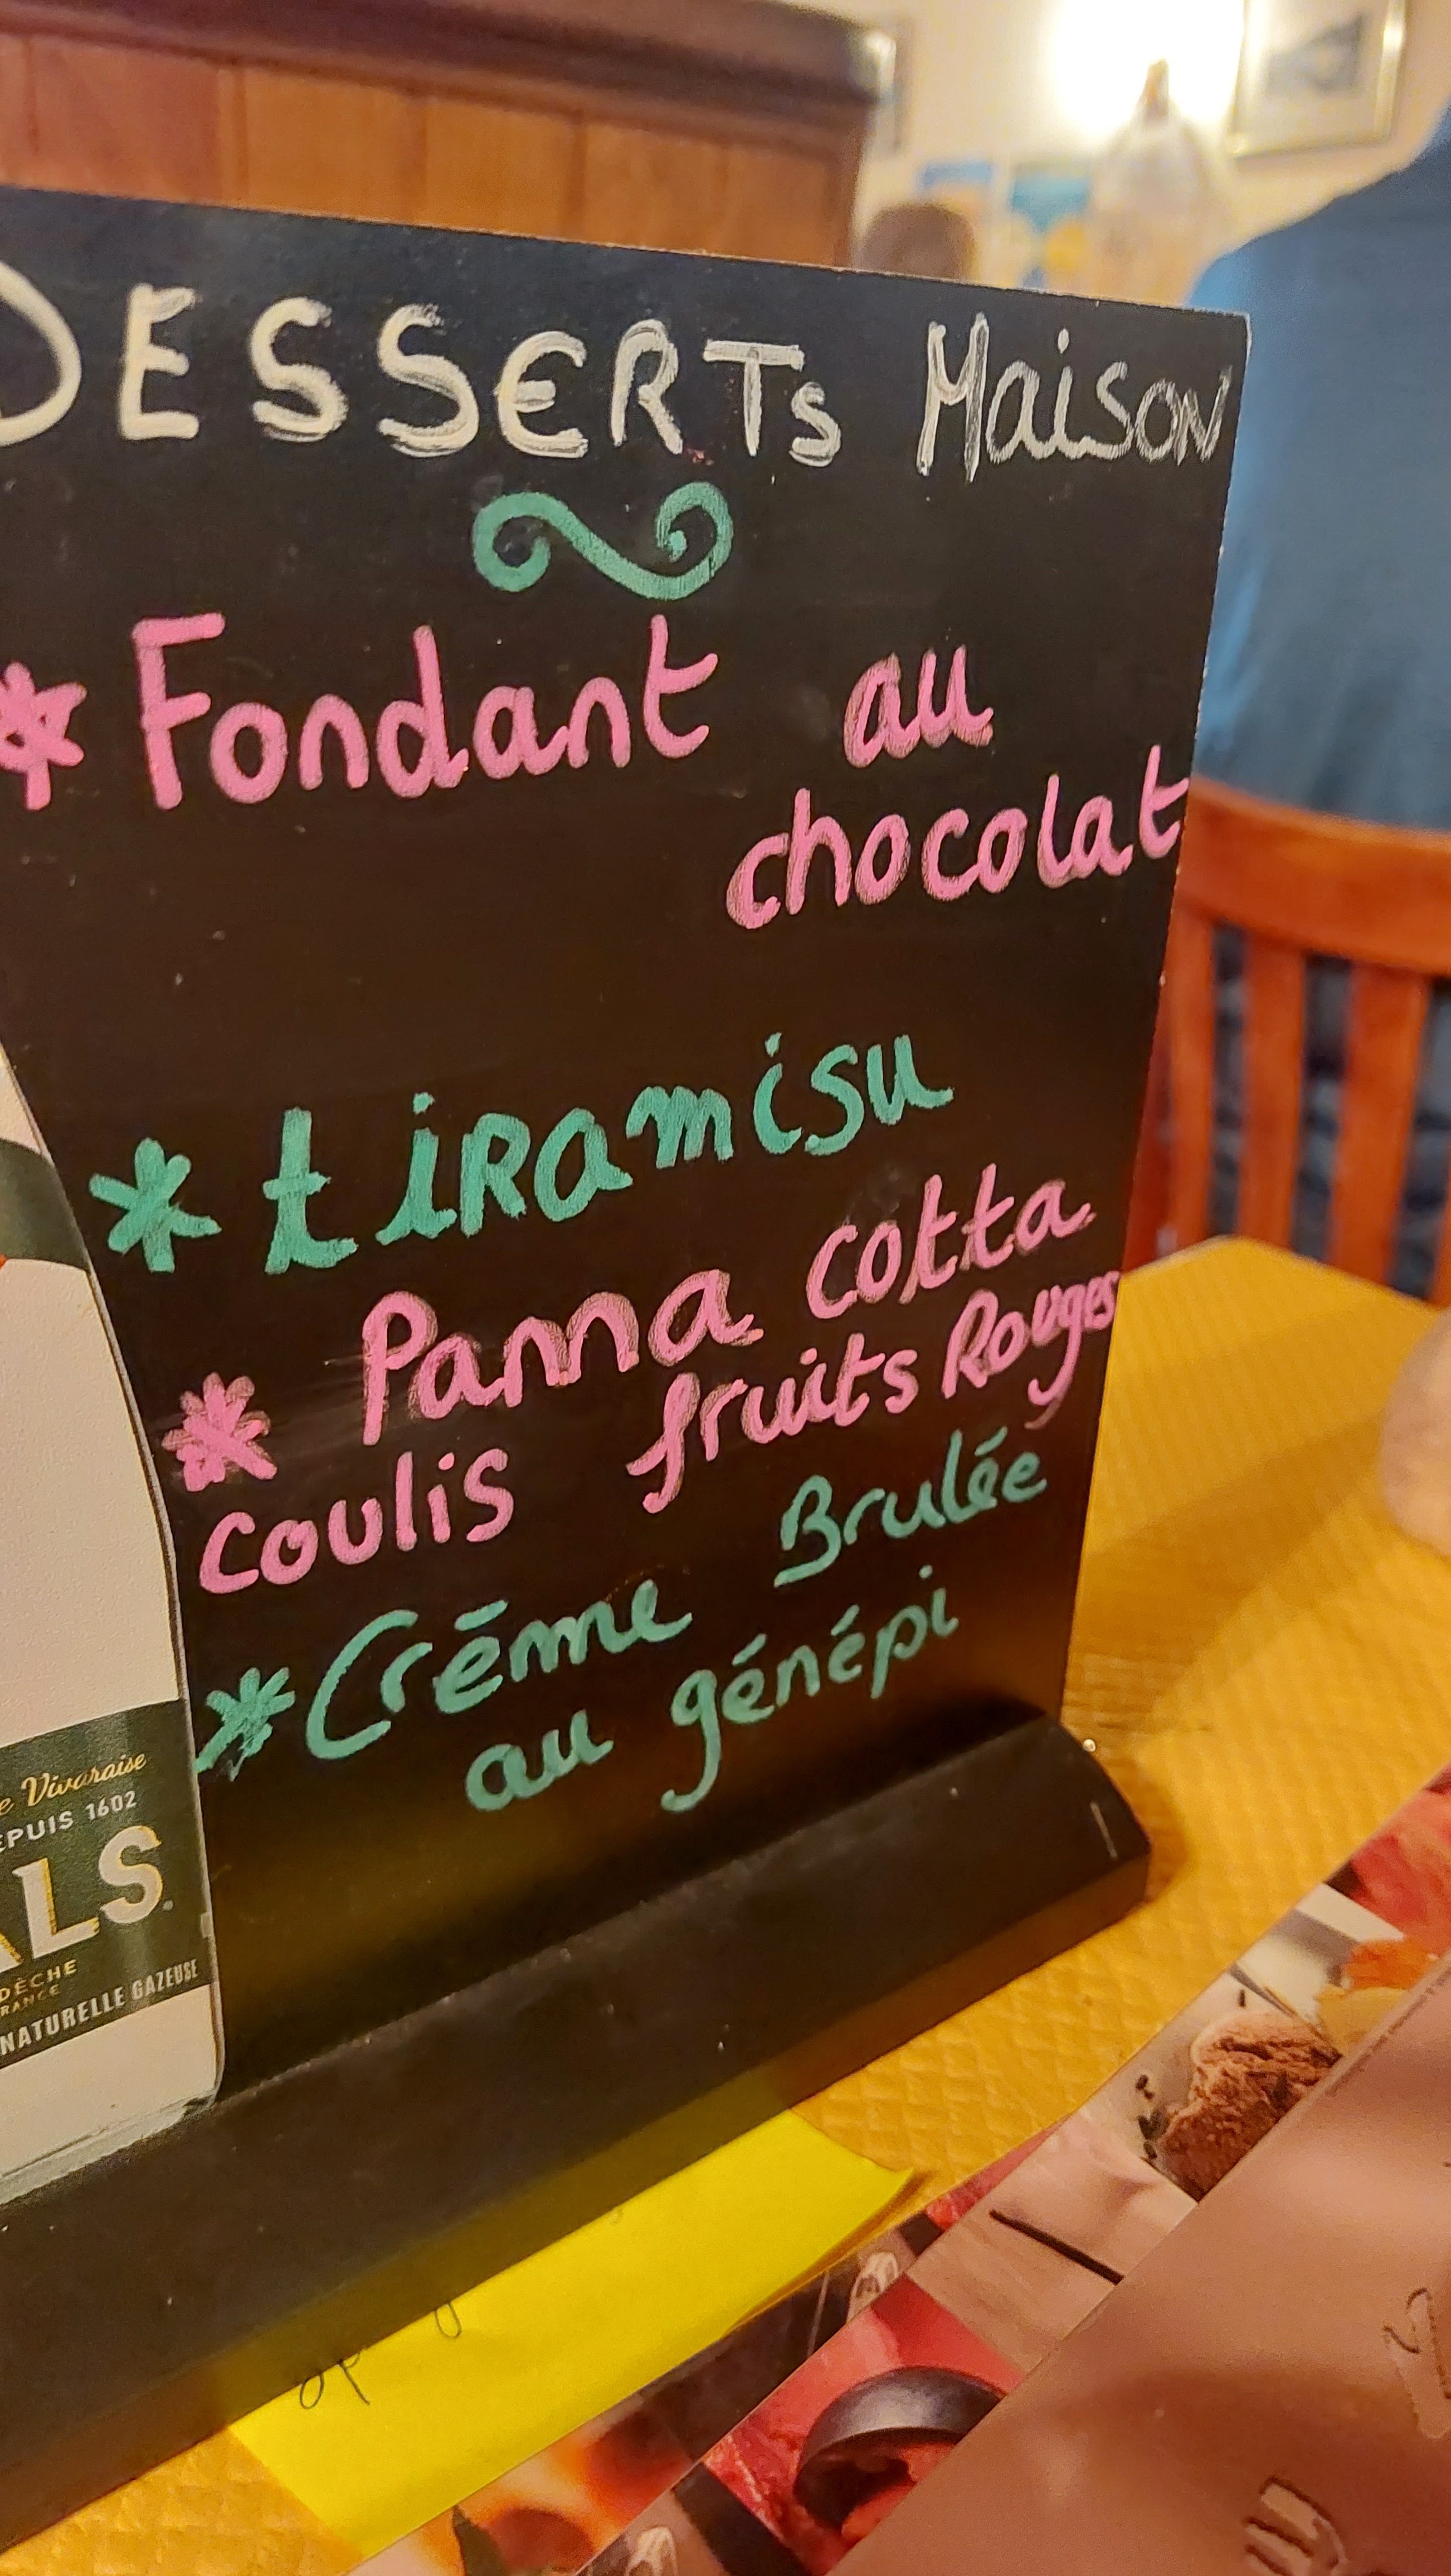 DESSERTs Maison
* Fondant au
chocolat
* tiramisu
* Panna cotta
coulis fruits Rouges
* Crème Brulée
au génépi
Vivaraise
DEPUIS 1602
ALS
DÈCHE
RANCE
NATURELLE GAZEUSE